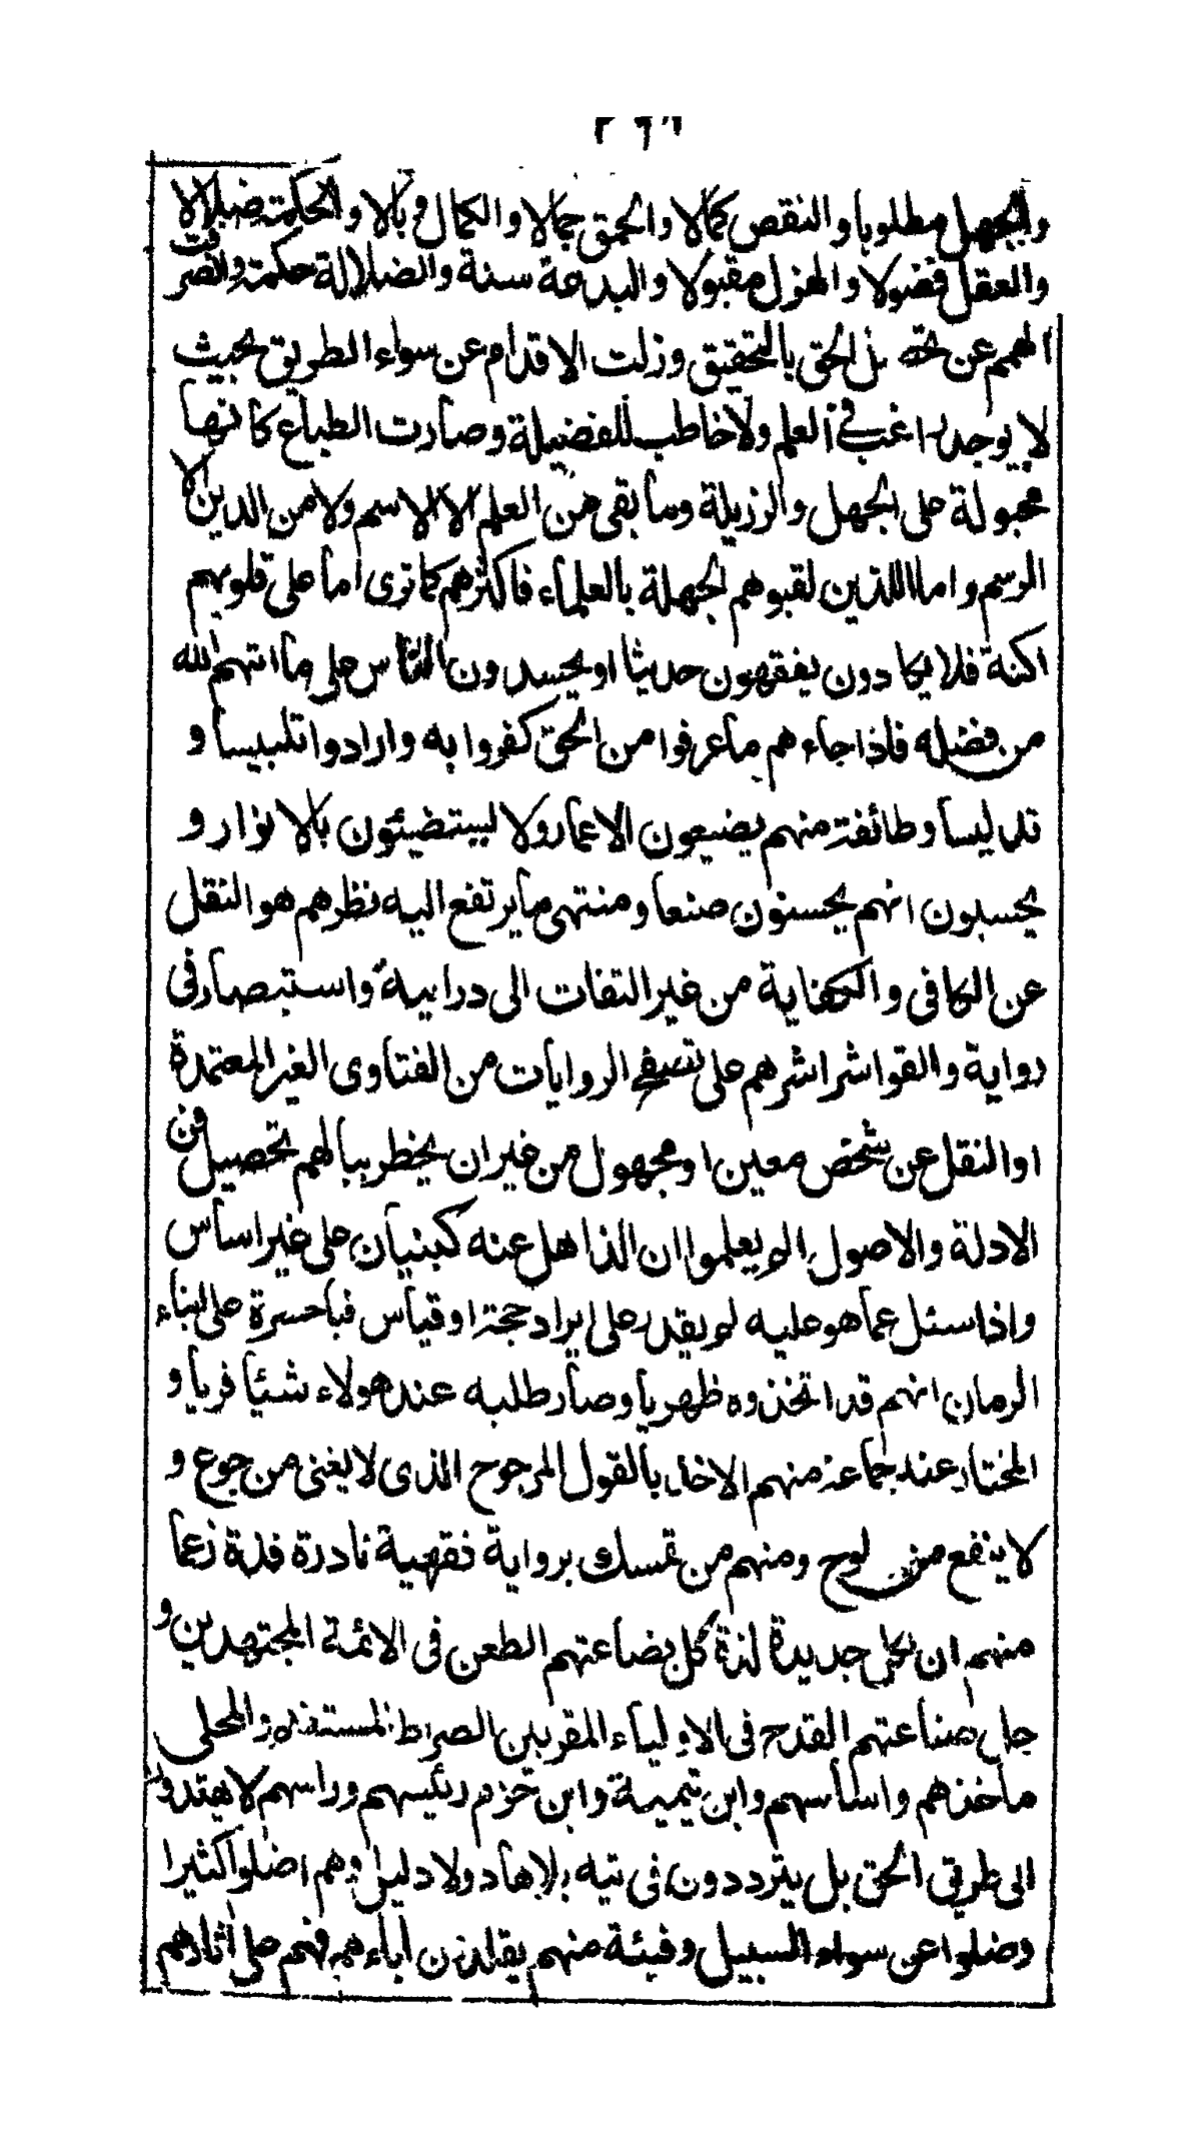 والجهل مطلوبا والنقص كمالا والحمق جمالا والكمال وبالا والحكمة ضلالا
والعقل فضولا والهزل مقبولا والبدعة سنة والضلالة حكمة وانصرفت
الهمم عن الحق بالتحقيق وزلت الاقدام عن سواء الطريق بحيث
لا يوجد راغب في العلم ولا خاطب للفضيلة وصارت الطباع كانها
مجبولة على الجهل والرزيلة وما بقى من العلم الا الاسم ولا من الدين الا
الرسم واما اللذين لقبوهم الجهلة بالعلماء فاكثرهم كما ترى اما على قلوبهم
اكنة فلا يكادون يفقهون حديثا او يحسدون الناس على ما اتهم الله
من فضله فاذا جاءهم ما عرفوا من الحق كفروا به وارادوا تلبيسا و
تدليسا وطائفة منهم يضيعون الاعمار ولا ليستضيئون بالانوار و
يحسبون انهم يحسنون صنعا ومنتهى ما يرتفع اليه نظرهم هو النقل
عن الكافى والكفاية من غير التفات الى دراية واستبصار فى
رواية والقوا شراشرهم على تصفح الروايات من الفتاوى الغير المعتمدة
او النقل عن شخص معين او مجهول من غير ان يخطر ببالهم تحصيل فن
الادلة والاصول الم يعلموا ان الذاهل عنه كبنيان على غير اساس
واذا سئل عما هو عليه لم يقدر على ايراد حجة او قياس فيا حسرة على ابناء
الزمان انهم قد اتخذوه ظهريا وصار طلبه عند هولاء شيئا فريا و
المختار عند جماعة منهم الاخذ بالقول المرجوح الذى لا يغنى من جوع و
لا ينفع من لوح ومنهم من تمسك برواية فقهية نادرة فذة زعما
منهم ان لكل جديدة لذة كل بضاعتهم الطعن فى الائمة المجتهدين و
جل صناعتهم القدح فى الاولياء المقربين الصراط المستقيم والمحلى
ماخذهم واساسهم وابن تيمية وابن حزم رئيسهم وراسهم لا يهتدون
الى طريق الحق بل يترددون فى تيه بلا هاد ولا دليل وهم اضلوا كثيرا
وضلوا عن سواء السبيل وفيئة منهم يقلدون اباءهم فهم على اثارهم